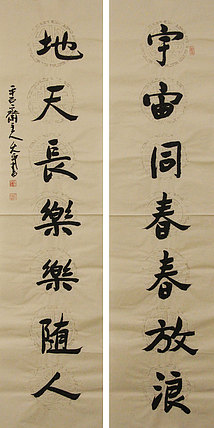 宇宙同春春放浪
地天長樂樂隨人
主人